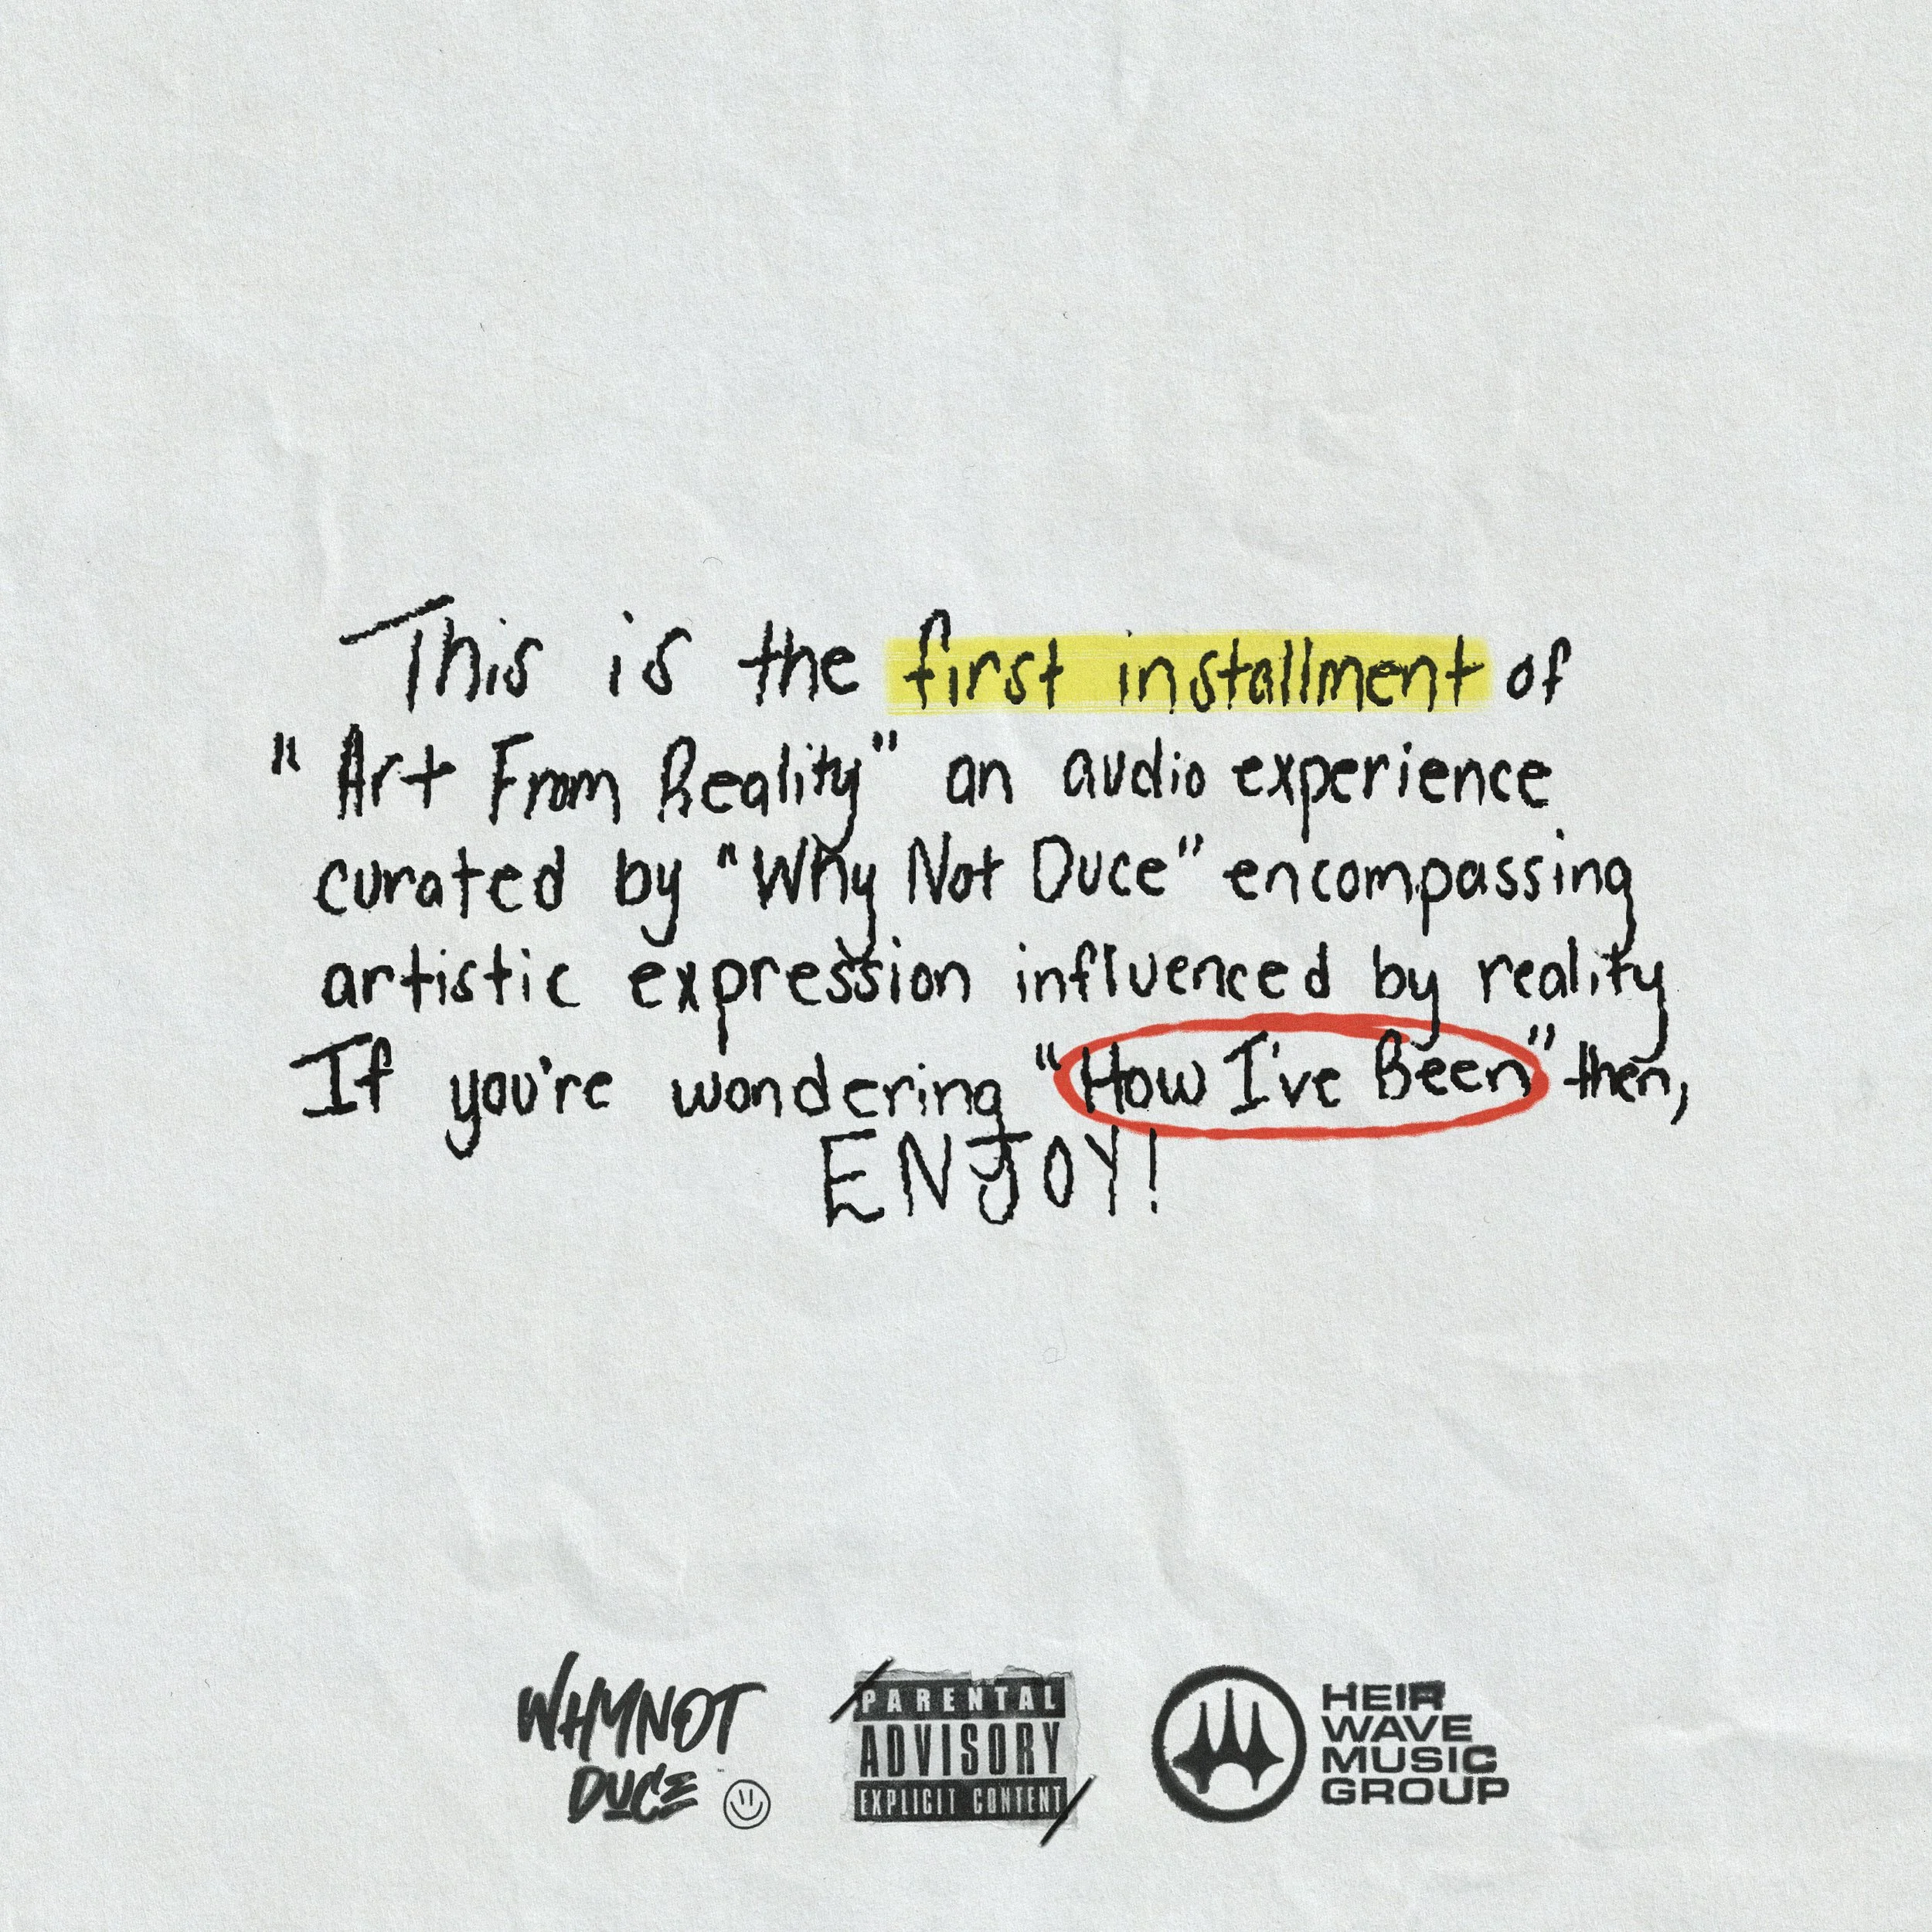 This is the first installment of
"Art From Reality" an audio experience
curated by "Why Not Duce" encompassing
artistic expression influenced by reality
If you're wondering "How I've Been" then,
ENJOY!
WHYNOT
DUCE
PARENTAL
ADVISORY
EXPLICIT CONTENT
HEIR
WAVE
MUSIC
GROUP